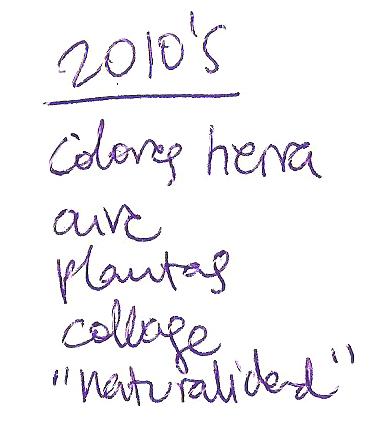 2010's
colores tierra
aire
plantas
collage
"naturalidad"